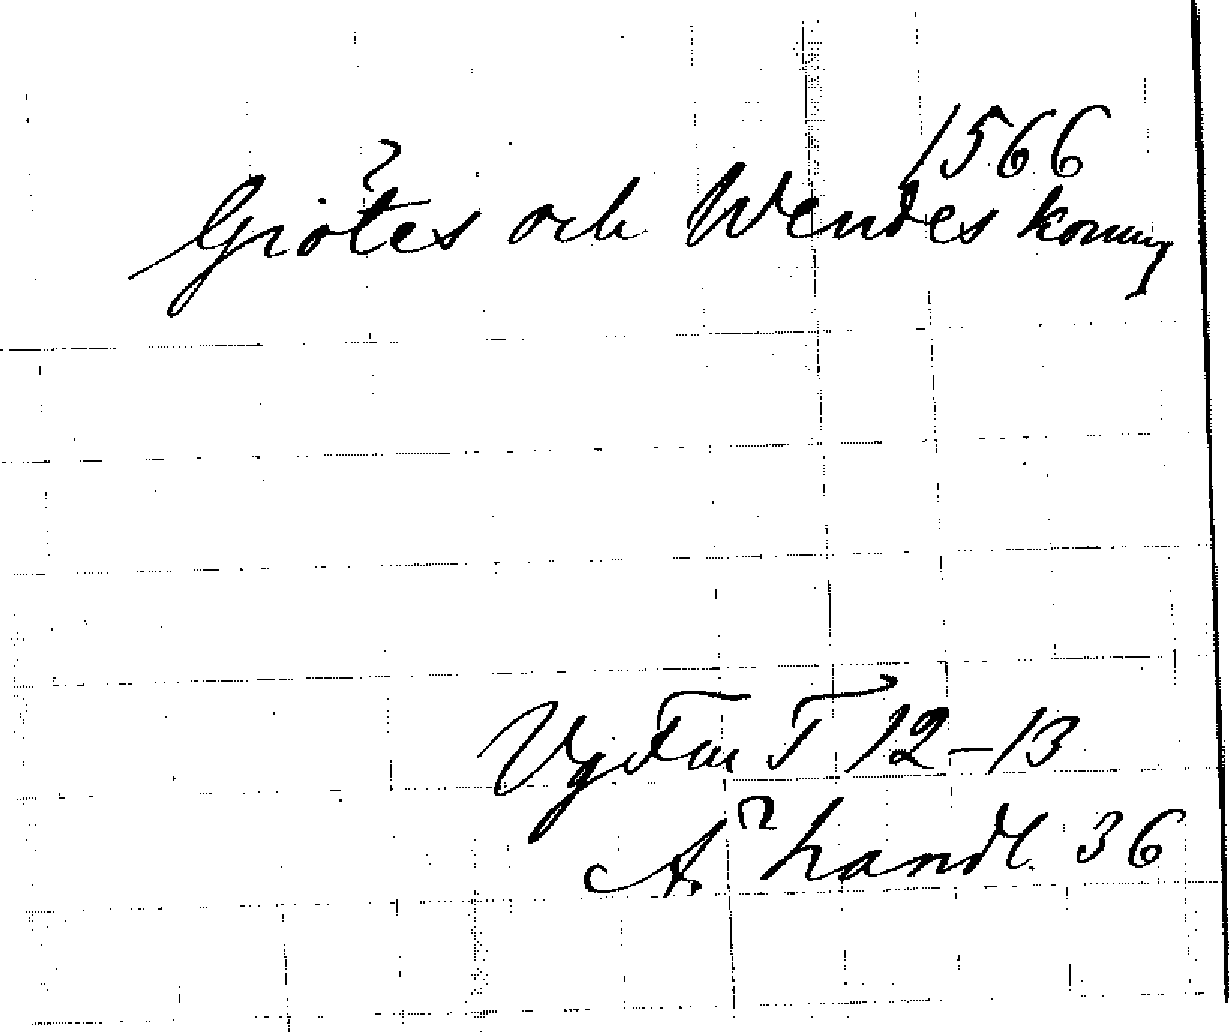 1566
Giötes och Wendes konung
VgFmT I 12-13
A handl. 36